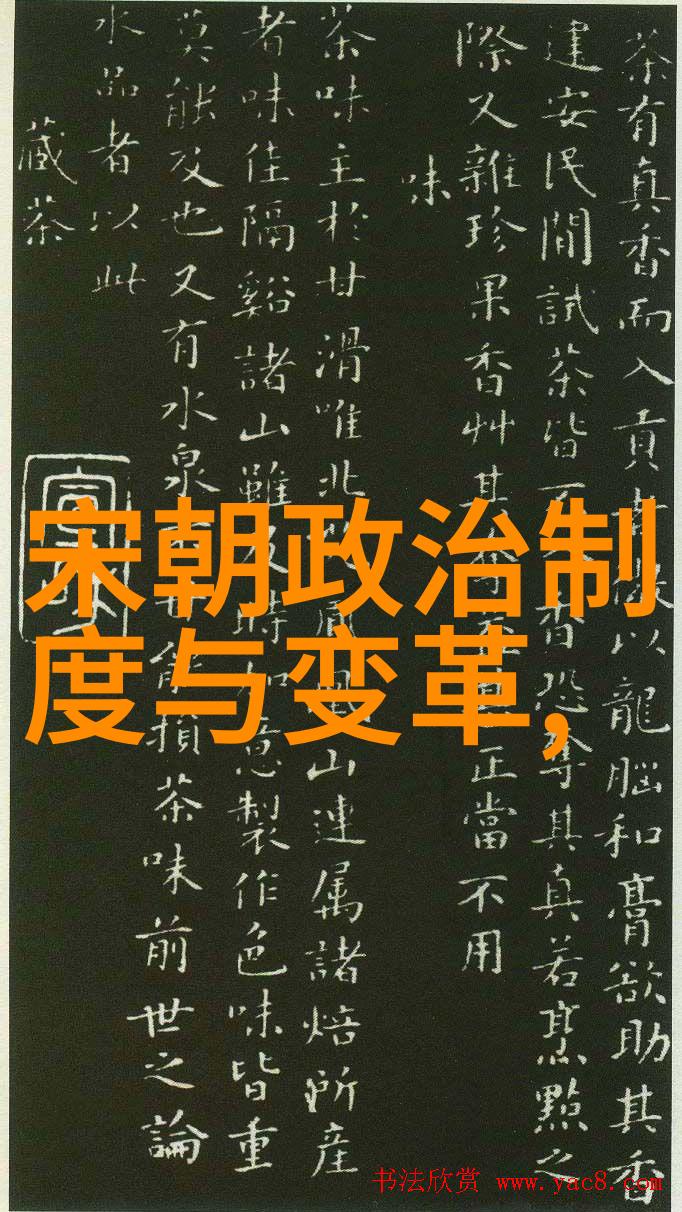 茶有真香而入貢者以龍腦和膏欲助其香
建安民間試茶皆不香恐奪其真若烹點之
際又雜珍果香艸其奪正當不用
味
茶味主於甘滑唯北山連属諸焙所産
者味佳隔谿諸山雖及時加意製作色味皆重
莫能及也又有水泉能損茶味前世之論
水品者以此
藏茶
宋朝政治制
度与变革,
书法欣赏 www.yac8.com